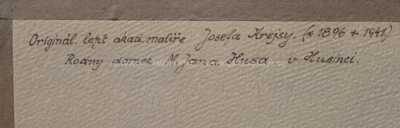 Originál. lept akad. malíře Josefa Krejsy. (* 1896 + 1941)
Rodný domek M. Jana Husa v Husinci.